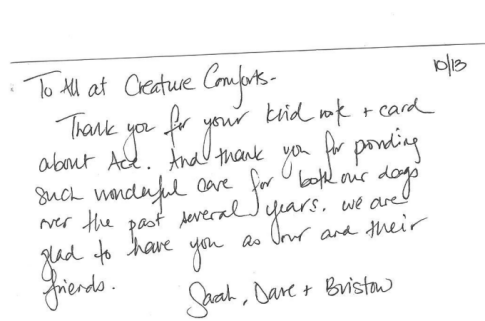 10/13
To All at Creature Comforts-
Thank you for your kind note + card
about Ace. And thank you for providing
such wonderful care for both our dogs
over the past several years. We are
glad to have you as our and their
friends.
Sarah, Dave + Bristow